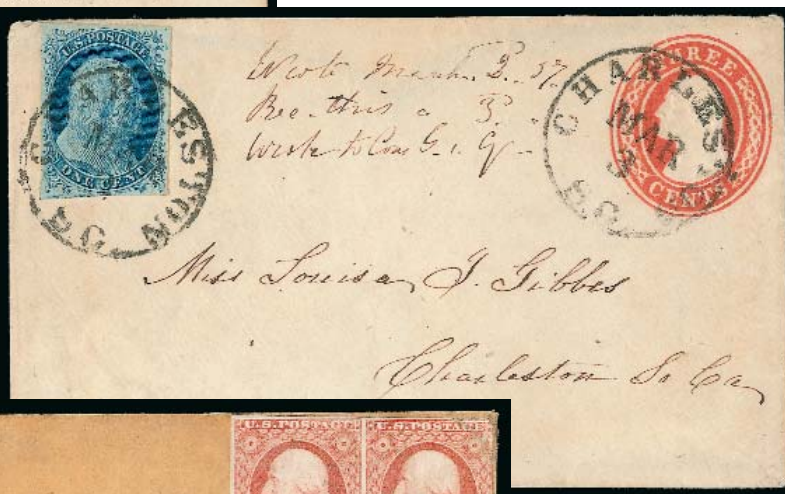 U.S. POSTAGE
ONE CENT
CHARLESTON
S.C.
Wrote March 2. 57
Rec. this " 3 "
Wrote to
THREE
CENTS
CHARLESTON
MAR
3
S.C.
Miss Louisa J. Gibbes
Charleston So Ca
U.S. POSTAGE
U.S. POSTAGE